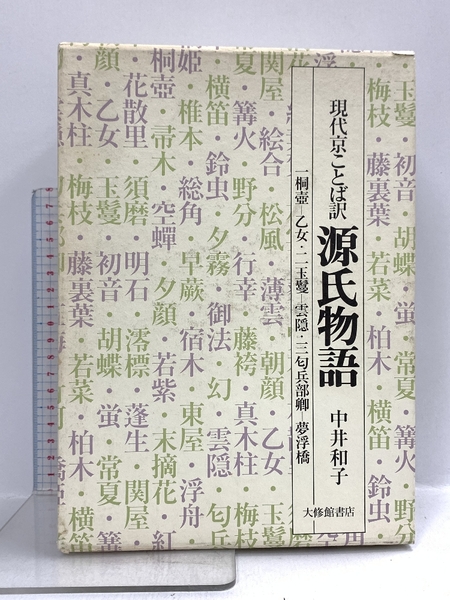 現代京ことば訳 源氏物語 中井和子
一桐壺―乙女・二玉鬘―雲隠・三匂兵部卿―夢浮橋
大修館書店
玉鬘・初音・胡蝶
梅枝・藤裏葉・若菜・柏木・横笛・鈴虫
関屋・絵合・松風・薄雲・朝顔・乙女・
常夏・篝火・野分・行幸・藤袴・真木柱・梅枝
横笛・鈴虫・夕霧・御法・幻・雲隠・匂兵
姫・椎本・総角・早蕨・宿木・東屋・浮舟・
桐壺・帚木・空蟬・夕顔・若紫・末摘花・紅
花散里・須磨・明石・澪標・蓬生・関屋・
顔・乙女・玉鬘・初音・胡蝶・蛍・常夏・
真木柱・梅枝・藤裏葉・若菜・柏木・横笛